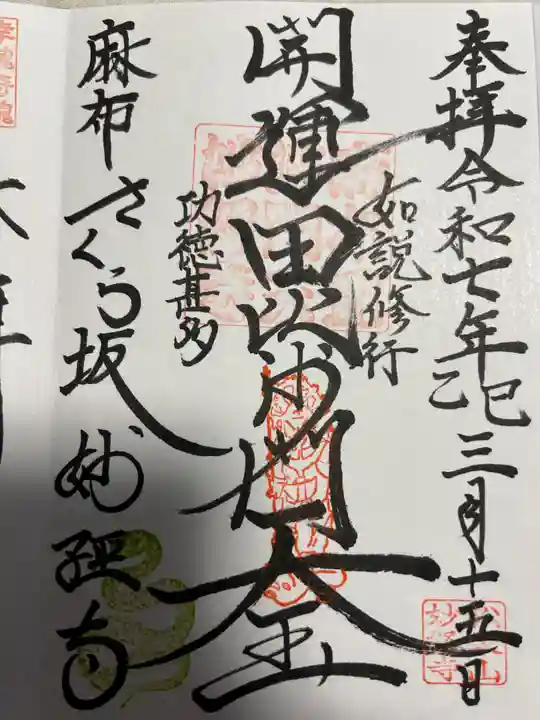 奉拝 令和七年 乙巳 三月十五日
如説修行
開運毘沙門天王
功徳甚多
麻布 さくら坂 妙経寺